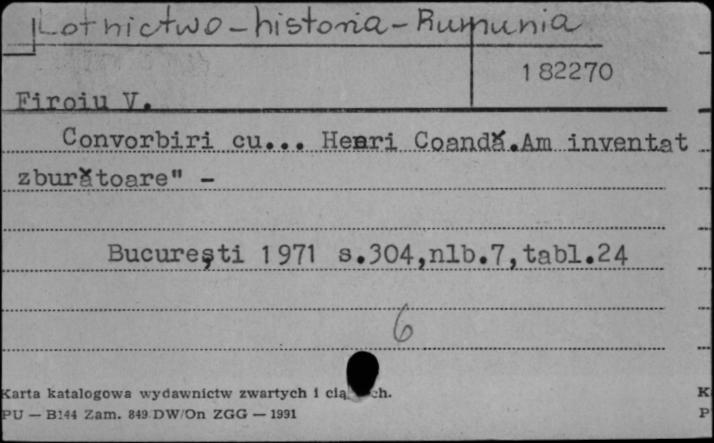 Lotnictwo - historia - Rumunia
182270
Firoiu V.
Convorbiri cu... Henri Coandă. Am inventat
zburătoare" -
București 1971 s.304,nlb.7,tabl.24
6
Karta katalogowa wydawnictw zwartych i cią ch.
PU — B144 Zam. 849/DW/On ZGG — 1991
K
P